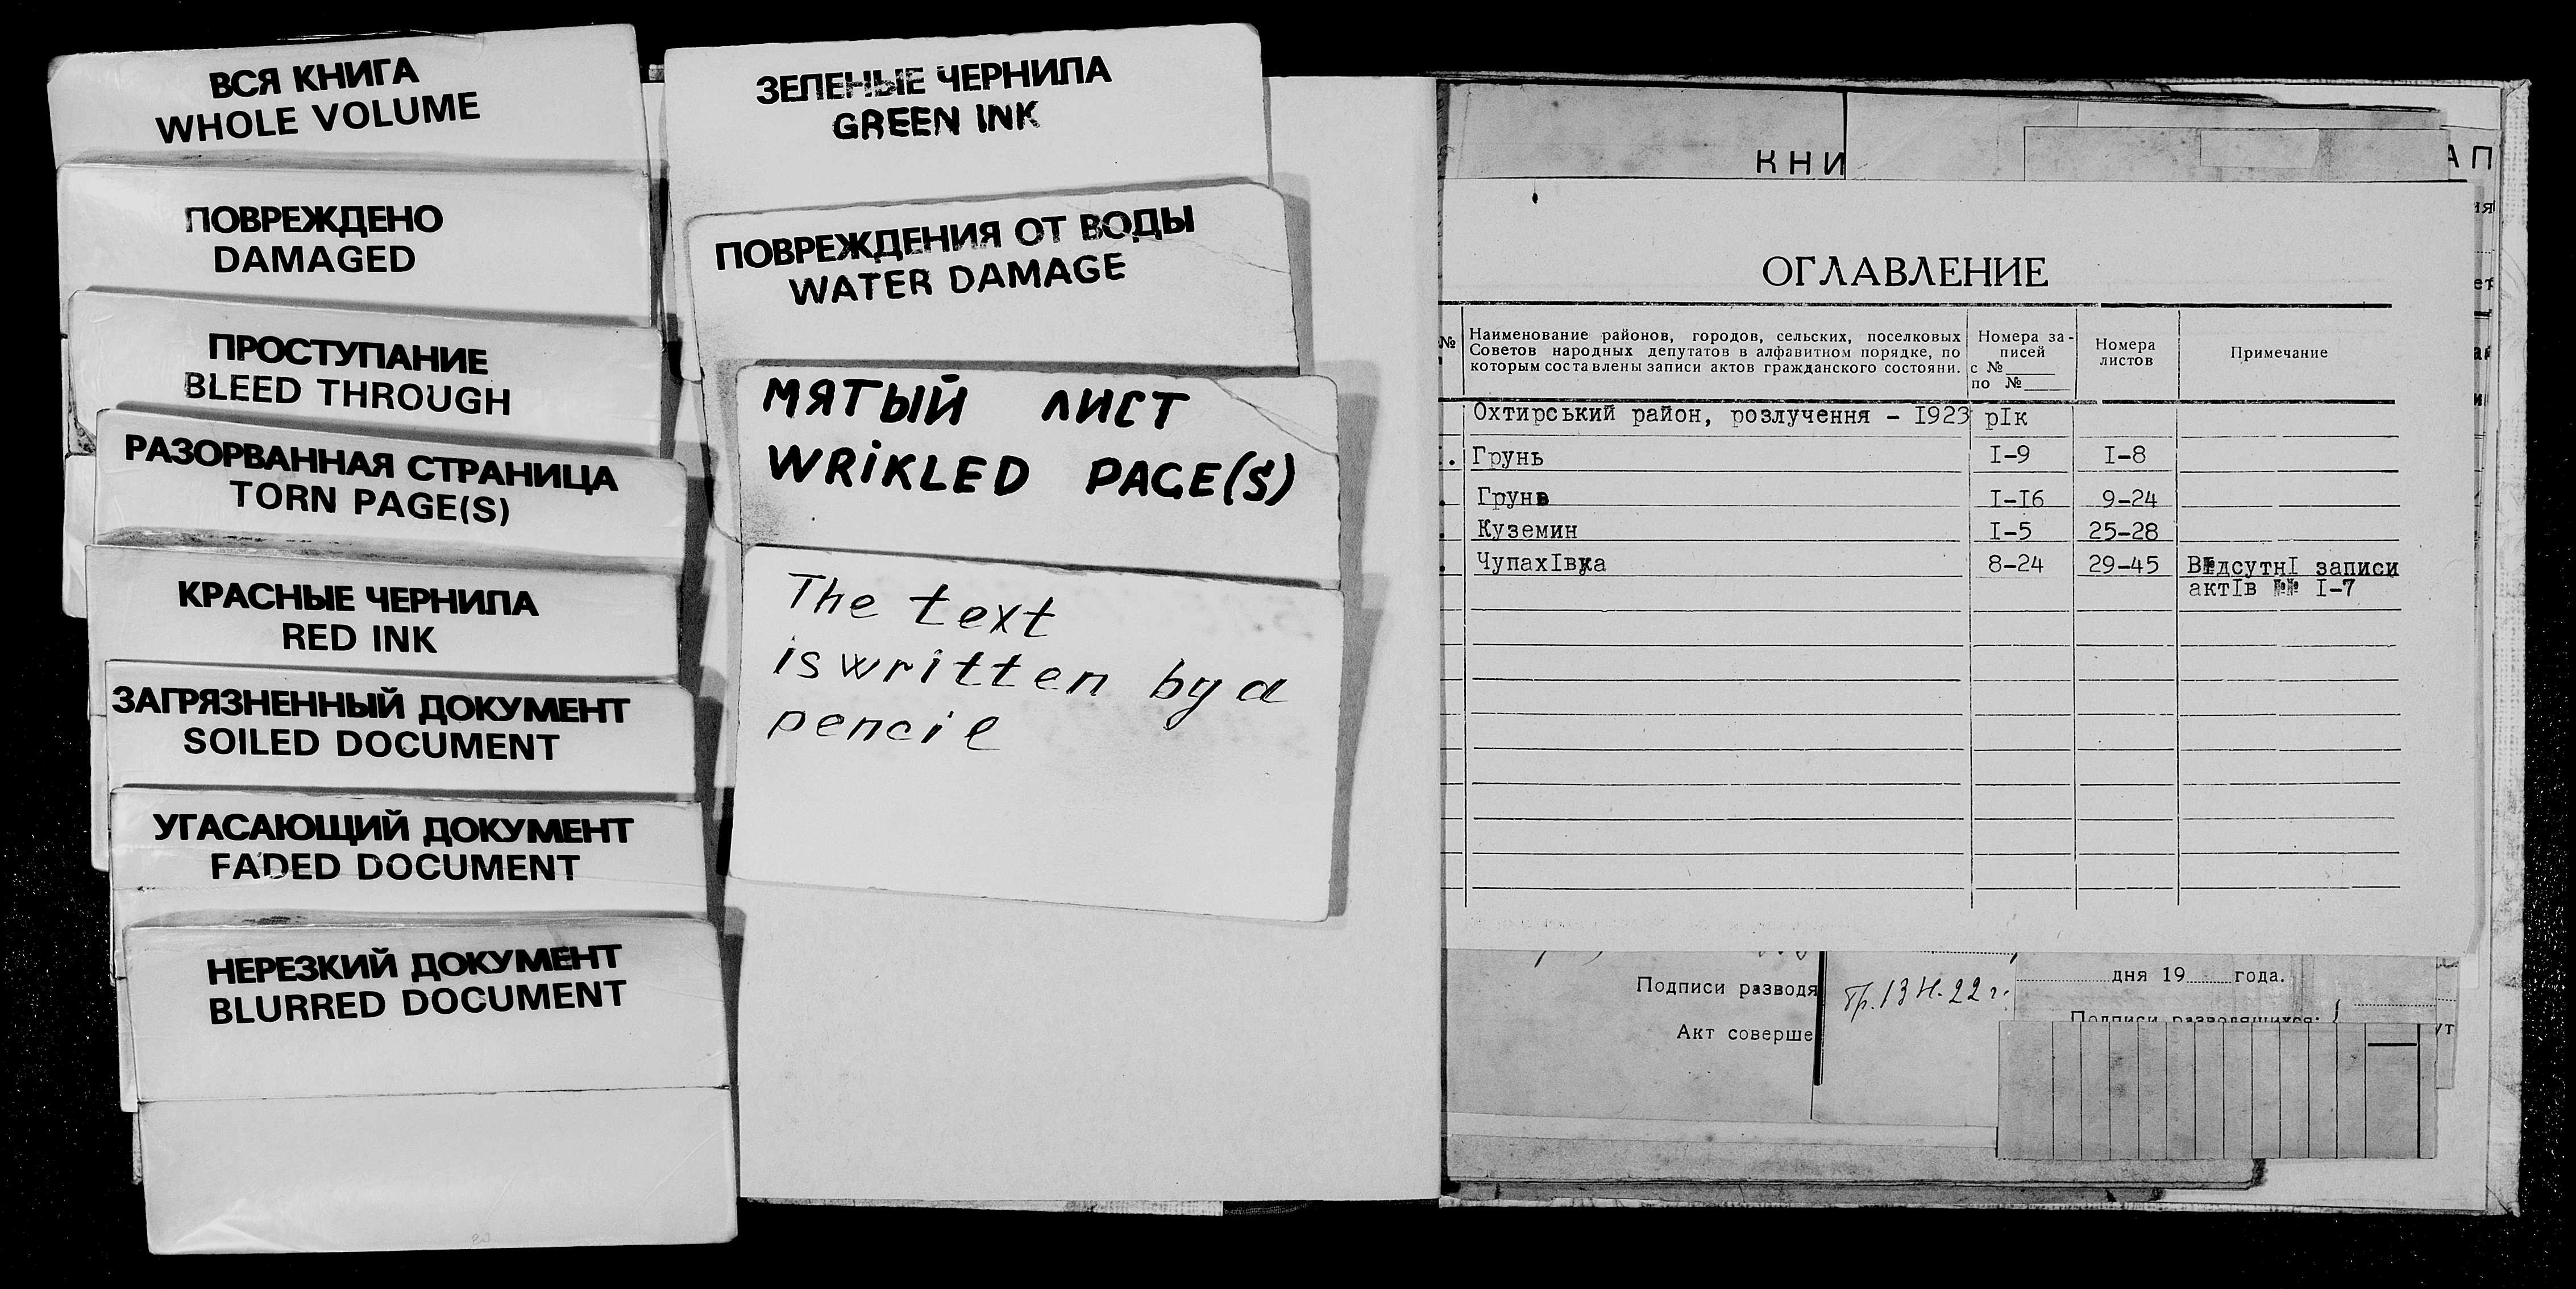 ВСЯ КНИГА
WHOLE VOLUME
ПОВРЕЖДЕНО
DAMAGED
ПРОСТУПАНИЕ
BLEED THROUGH
РАЗОРВАННАЯ СТРАНИЦА
TORN PAGE(S)
КРАСНЫЕ ЧЕРНИЛА
RED INK
ЗАГРЯЗНЕННЫЙ ДОКУМЕНТ
SOILED DOCUMENT
УГАСАЮЩИЙ ДОКУМЕНТ
FADED DOCUMENT
НЕРЕЗКИЙ ДОКУМЕНТ
BLURRED DOCUMENT
ЗЕЛЕНЫЕ ЧЕРНИЛА
GREEN INK
ПОВРЕЖДЕНИЯ ОТ ВОДЫ
WATER DAMAGE
МЯТЫЙ ЛИСТ
WRIKLED PAGE(S)
The text
is written by a
pencil
КНИ
АП
ОГЛАВЛЕНИЕ
№
Наименование районов, городов, сельских, поселковых
Советов народных депутатов в алфавитном порядке, по
которым составлены записи актов гражданского состояни.
Номера за-
писей
с №
по №
Номера
листов
Примечание
Охтирський район, розлучення - I923 рIк
Грунь I-9 I-8
Грунь I-I6 9-24
Куземин I-5 25-28
ЧупахIвка 8-24 29-45 ВIдсутнI записи
актIв №№ I-7
Подписи разводя
Акт соверше
дня 19 года.
Подписи разводящихся: